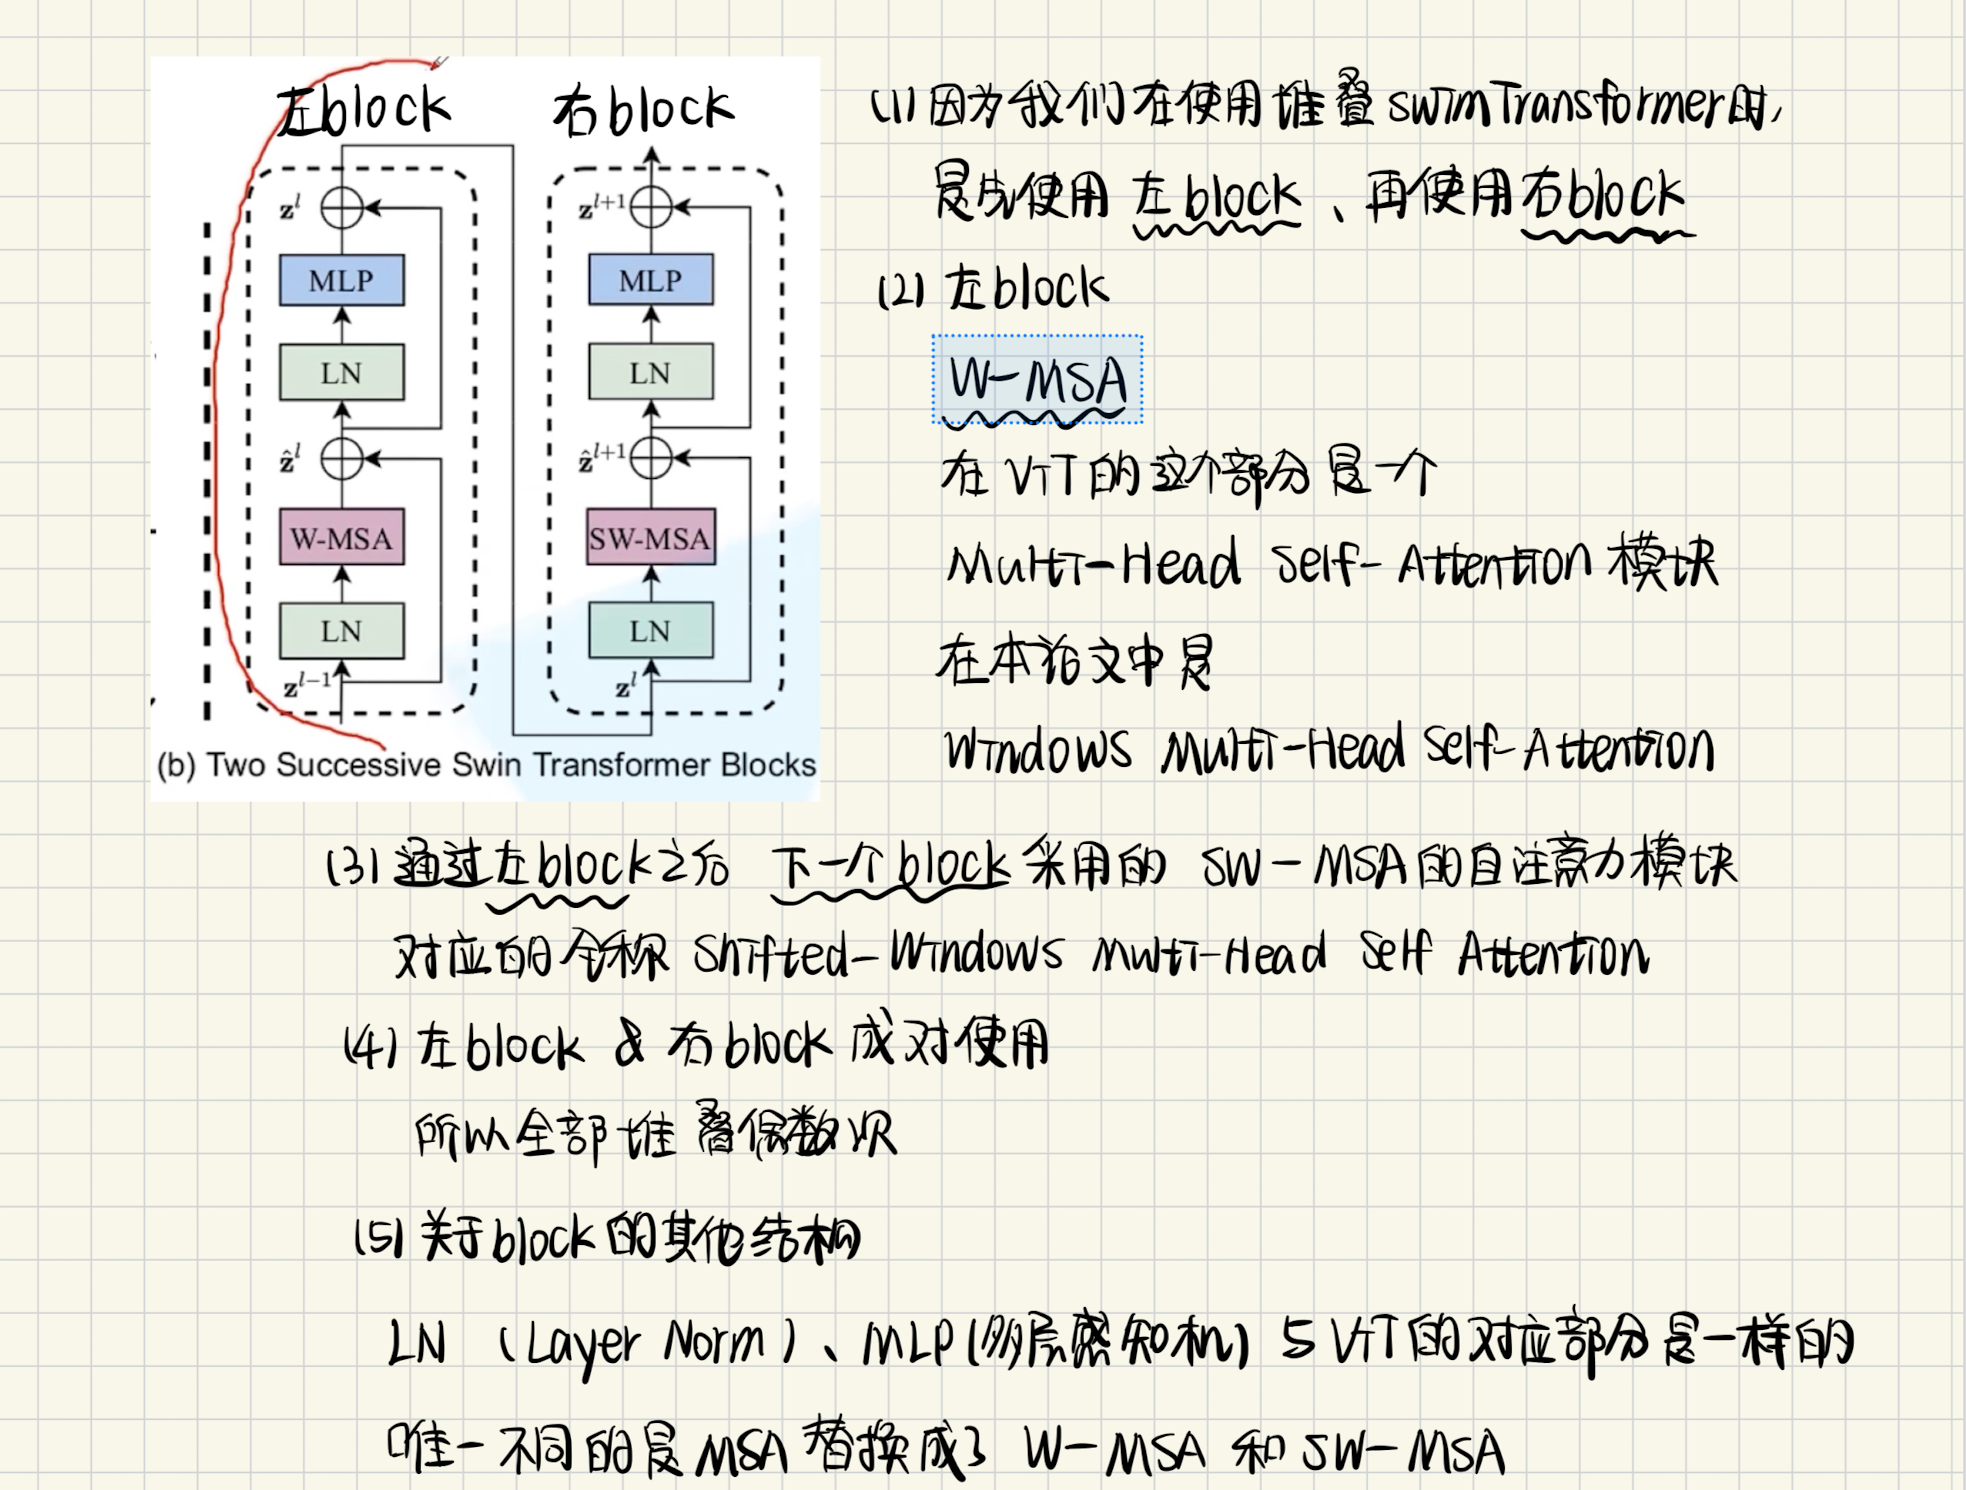 左block 右block
z^l z^{l+1}
MLP MLP
LN LN
ẑ^l ẑ^{l+1}
W-MSA SW-MSA
LN LN
z^{l-1} z^l
(b) Two Successive Swin Transformer Blocks
(1) 因为我们在使用堆叠 swin Transformer时,
是先使用 左block、再使用右block
(2) 左block
W-MSA
在 ViT 的这个部分是一个
Multi-Head Self-Attention 模块
在本论文中是
Windows Multi-Head Self-Attention
(3) 通过左block之后 下一个block采用的 SW-MSA的自注意力模块
对应的全称 Shifted-Windows Multi-Head Self Attention
(4) 左block & 右block 成对使用
所以全部堆叠偶数次
(5) 关于block的其他结构
LN (Layer Norm)、MLP(多层感知机) 与 ViT的对应部分是一样的
唯一不同的是 MSA 替换成了 W-MSA 和 SW-MSA